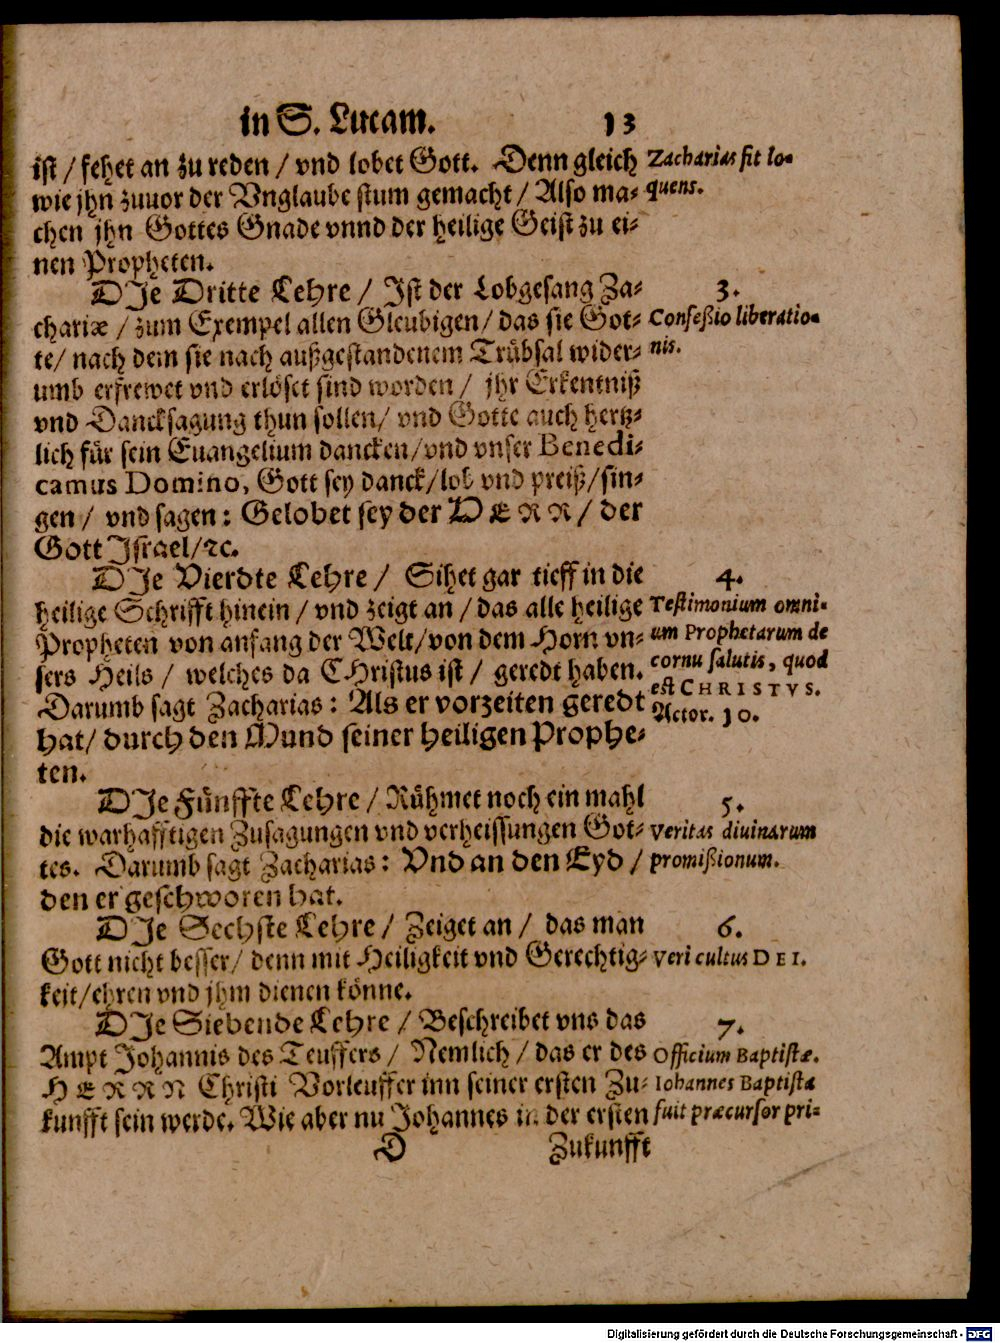 in S. Lucam. 13
ist / fehet an zu reden / vnd lobet Gott. Denn gleich
wie jhn zuuor der Vnglaube stum gemacht / Also ma-
chen jhn Gottes Gnade vnnd der heilige Geist zu ei-
nen Propheten.
Zacharias fit lo-
quens.
DIe Dritte Lehre / Ist der Lobgesang Za-
chariæ / zum Exempel allen Gleubigen / das sie Got-
te / nach dem sie nach außgestandenem Trübsal wider-
umb erfrewet vnd erlöset sind worden / jhr Erkentniß
vnd Dancksagung thun sollen / vnd Gotte auch hertz-
lich für sein Euangelium dancken / vnd vnser Benedi-
camus Domino, Gott sey danck / lob vnd preiß / sin-
gen / vnd sagen: Gelobet sey der HERR / der
Gott Israel / ꝛc.
3.
Confeßio liberatio-
nis.
DIe Vierdte Lehre / Sihet gar tieff in die
heilige Schrifft hinein / vnd zeigt an / das alle heilige
Propheten von anfang der Welt / von dem Horn vn-
sers Heils / welches da CHristus ist / geredt haben.
Darumb sagt Zacharias: Als er vorzeiten geredt
hat / durch den Mund seiner heiligen Prophe-
ten.
4.
Testimonium omni-
um Prophetarum de
cornu salutis, quod
est CHRISTVS.
Actor. 10.
DIe Fünffte Lehre / Rühmet noch ein mahl
die warhafftigen Zusagungen vnd verheissungen Got-
tes. Darumb sagt Zacharias: Vnd an den Eyd /
den er geschworen hat.
5.
Veritas diuinarum
promißionum.
DIe Sechste Lehre / Zeiget an / das man
Gott nicht besser / denn mit Heiligkeit vnd Gerechtig-
keit / ehren vnd jhm dienen könne.
6.
Veri cultus DEI.
DIe Siebende Lehre / Beschreibet vns das
Ampt Johannis des Teuffers / Nemlich / das er des
HERRN Christi Vorleuffer inn seiner ersten Zu-
kunfft sein werde. Wie aber nu Johannes in der ersten
7.
Officium Baptistæ.
Iohannes Baptista
fuit præcursor pri-
D Zukunfft
Digitalisierung gefördert durch die Deutsche Forschungsgemeinschaft - DFG